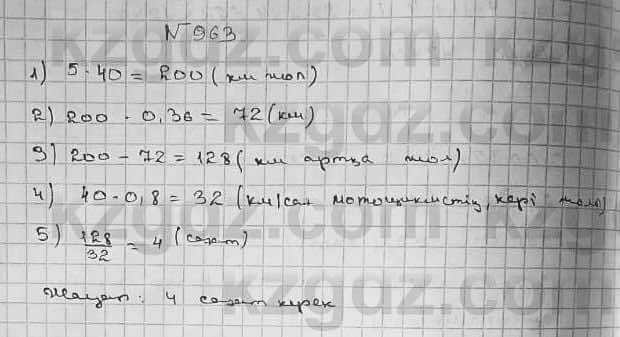 N 963
1) 5 · 40 = 200 (км жол)
2) 200 · 0,36 = 72 (км)
3) 200 - 72 = 128 (км артқа жол)
4) 40 · 0,8 = 32 (км/сағ мотоциклистің, кері жолы)
5) 128/32 = 4 (сағат)
Жауап: 4 сағат керек
kzgdz.com